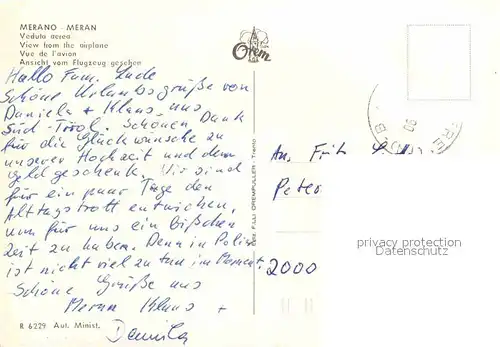 MERANO - MERAN
Veduta aerea
View from the airplane
Vue de l'avion
Ansicht vom Flugzeug gesehen
Orem
Hallo Fam.
Schöne Urlaubsgrüße von
Daniela + Klaus aus
Süd-Tirol. Schönen Dank
für die Glückwünsche zu
unserer Hochzeit und dem
Geldgeschenk. Wir sind
für ein paar Tage dem
Alltagstrott entwichen,
um für uns ein bißchen
Zeit zu haben. Denn in
ist nicht viel zu tun im Moment.
Schöne Grüße aus
Meran Klaus +
Daniela
R 6229 Aut. Minist.
Ediz. F.lli OREMPULLER - Trento
An Fritz
Peter
2000
privacy protection
Datenschutz